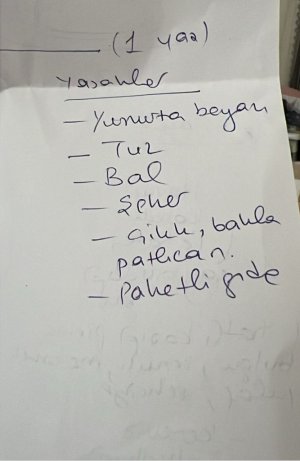 (1 yaş)
Yasaklar
- Yumurta beyazı
- Tuz
- Bal
- Şeker
- Çilek, bakla
patlıcan.
- Paketli gıda